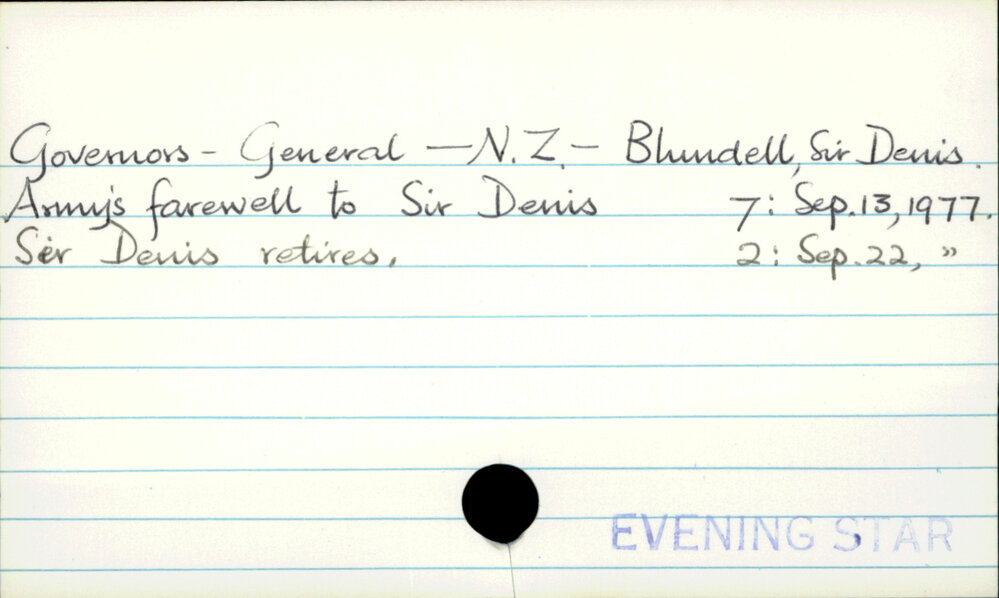 Governors - General — N. Z. — Blundell, Sir Denis.
Army's farewell to Sir Denis 7: Sep. 13, 1977.
Sir Denis retires. 2: Sep. 22, "
EVENING STAR